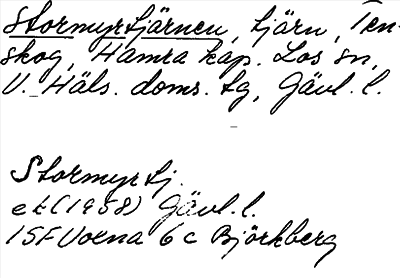 Stormyrtjärnen, tjärn, Ten-
skog, Hamra kap. Los sn,
V. Häls. doms. tg, Gävl. l.
Stormyrtj.
ek(1958) Gävl. l.
15F Voxna 6c Björkberg